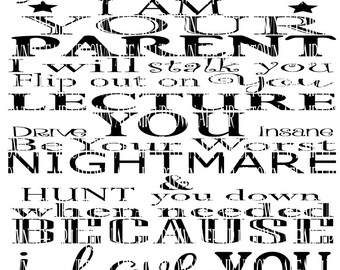 I AM
YOUR
PARENT
I will stalk you
Flip out on You
LECTURE
YOU
DRIVE Insane
Be Your Worst
NIGHTMARE
&
HUNT you down
when needed
BECAUSE
i Love YOU